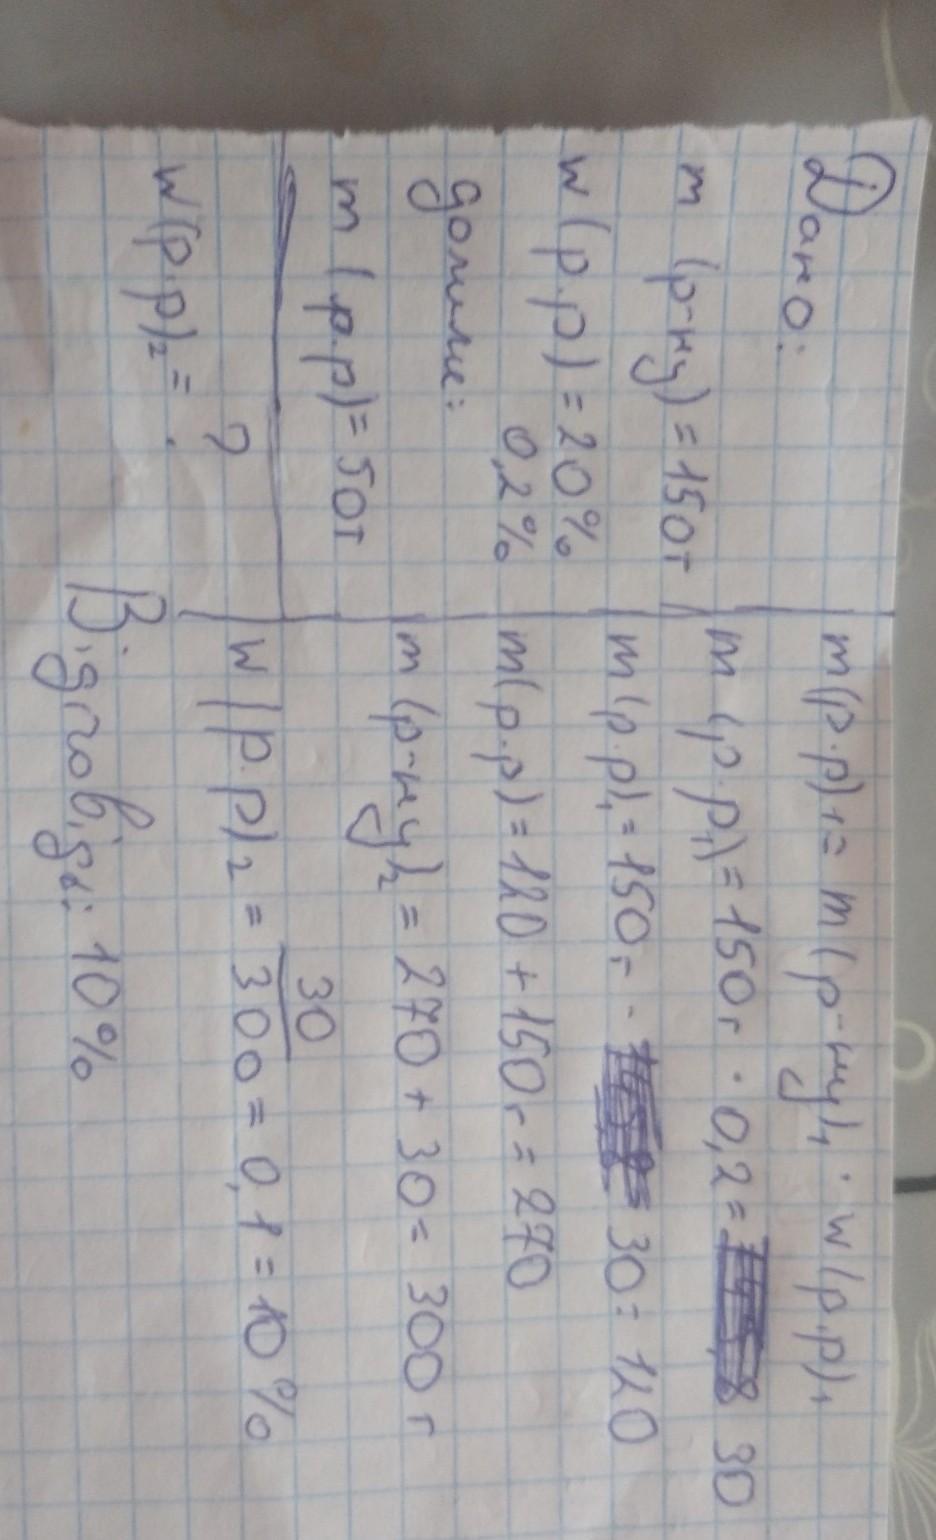 Дано:
m (р-ну) = 150г
w (р.р) = 20%
0,2%
долили:
m (р.р) = 50г
w(р.р)₂ = ?
m(р.р)₁ = m(р-ну)₁ · w(р.р)₁
m (р.р₁) = 150г · 0,2 = 30
m(р.р)₁ = 150г - 30 = 120
m(р.р) = 120 + 150г = 270
m(р-ну)₂ = 270 + 30 = 300 г
w(р.р)₂ = 30/300 = 0,1 = 10%
Відповідь: 10%